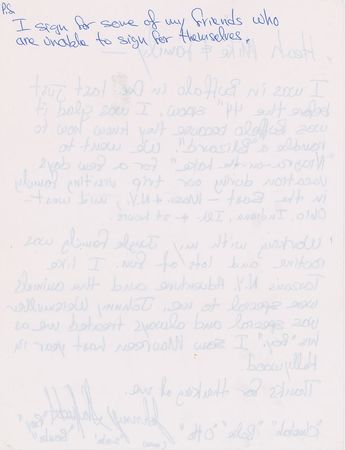 P.S.
I sign for some of my friends who
are unable to sign for themselves.
Mike & family
I was in Buffalo in Dec last just
before the 44" snow. I was glad it
was Buffalo because they know how to
handle a "Blizzard". We went to
"Niagra-on-the-lake" for a few days
vacation during our trip visiting family
in the East - Mass & N.Y., mid west -
Ohio, Indiana, Ill.
Working with my Jungle family was
routine and lots of fun. I like
Tarzans N.Y. Adventure and the animals
were special to me. Johnny Weismuller
was special and always treated me as
his "Boy". I saw Maureen last year in
Hollywood
Thanks for thinking of me.
Johnny Sheffield